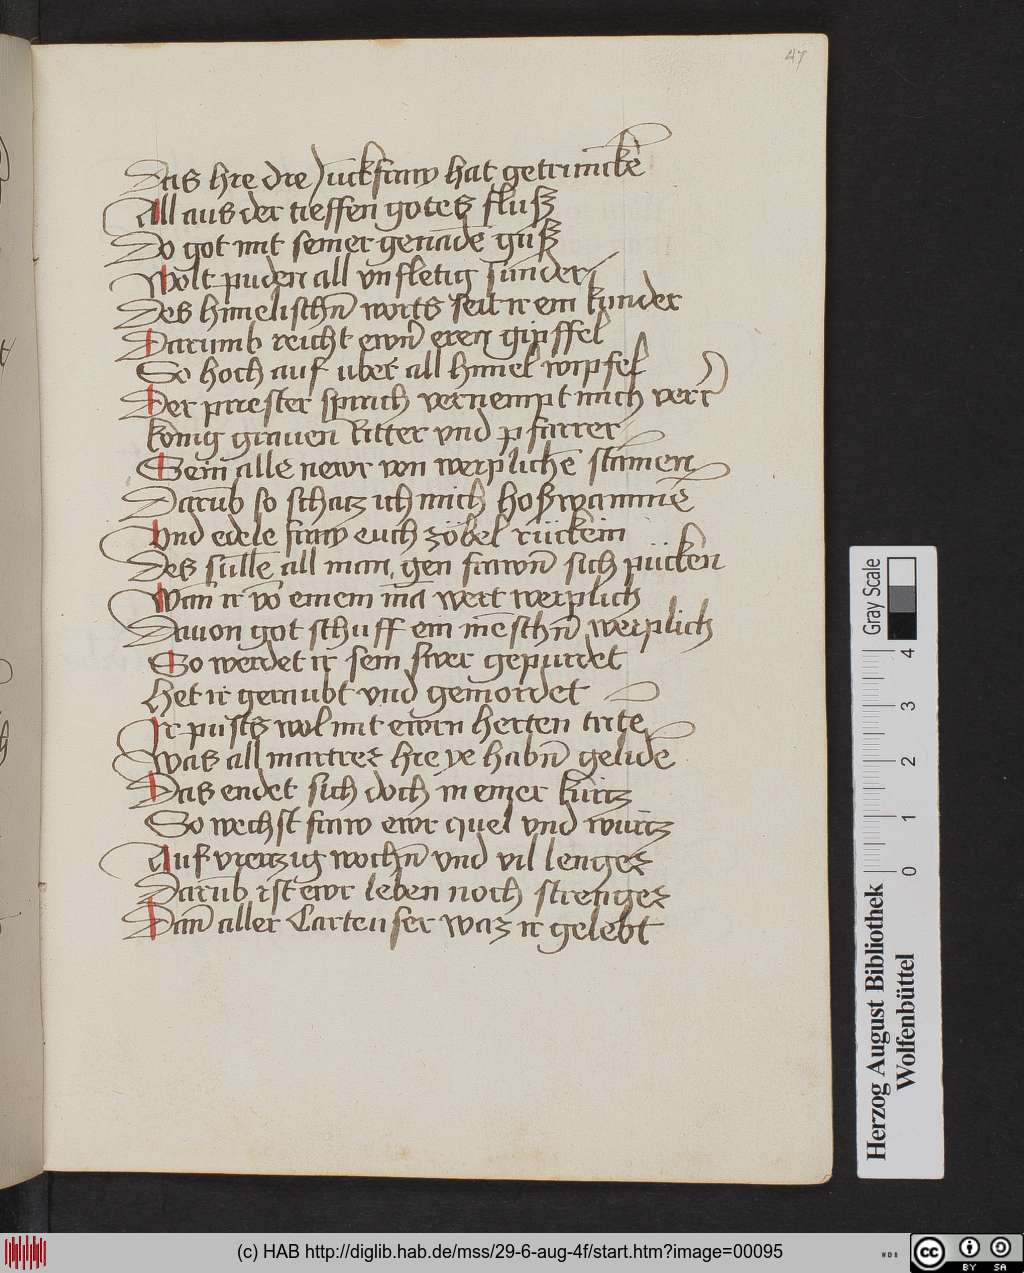 47
Das hie die Juckfraw hat getrūncke
All aus der tieffen gotes fluß
Do got mit seiner genade guß
Wolt puden all vnfletig sunder
Des himelischn̄ worts seit ir ein kunder
Darumb reicht ewr̄ eren gipffel
So hoch auf uber all himel wipfel
Der priester sprach vernempt mich verr
konig graven Ritter vnd pfarrer
Sein alle newr von weiplichē stamen
Darūb so schatz ich mich hoßwammē
Vnd edele fraw euch zobel rückein
Des sullē all man gen frawn̄ sich pücken
Wañ ir vō einem mā wert weiplich
Davon got schuff ein mēschn̄ weiplich
So werdet ir sein swer gepurdet
Het ir geraubt vnd gemordet
Ir pusts wol mit ewrn herten trite
Was all martrer hie ye habn̄ gelidē
Das endet sich doch in einer kurtz
So wechst fraw ewr quel vnd wurtz
Auf viertzig wochn̄ vnd vil lenger
Darūb ist ewr leben noch strenger
Dañ aller Cartenser waz ir gelebt
Gray Scale
0 1 2 3 4
Herzog August Bibliothek
Wolfenbüttel
(c) HAB http://diglib.hab.de/mss/29-6-aug-4f/start.htm?image=00095
WDB
cc BY SA